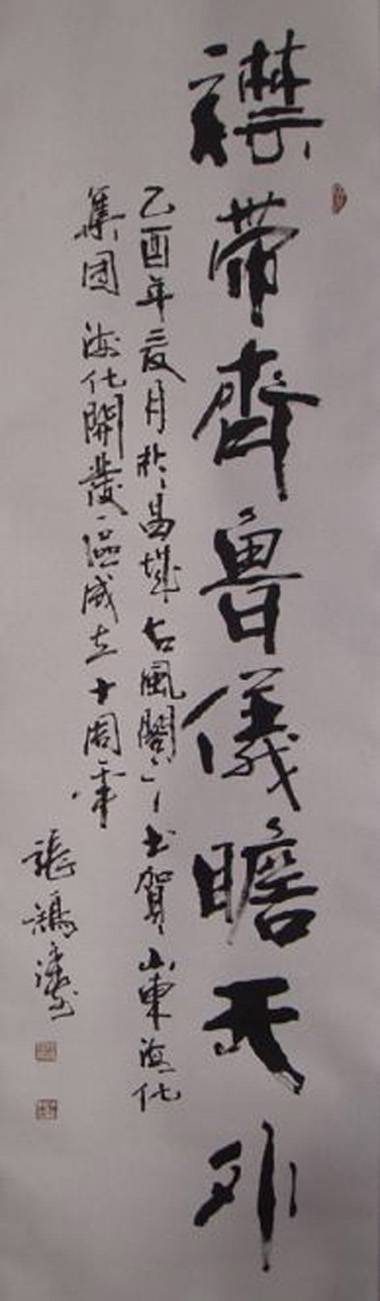 襟帶齊魯儀瞻天外
乙酉年夏月於昌城古風閣下書賀山東海化
集团海化開發區成立十周年
張鴻